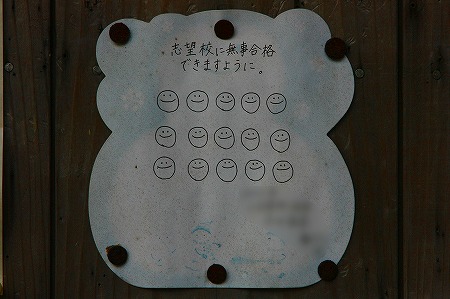 志望校に無事合格
できますように。